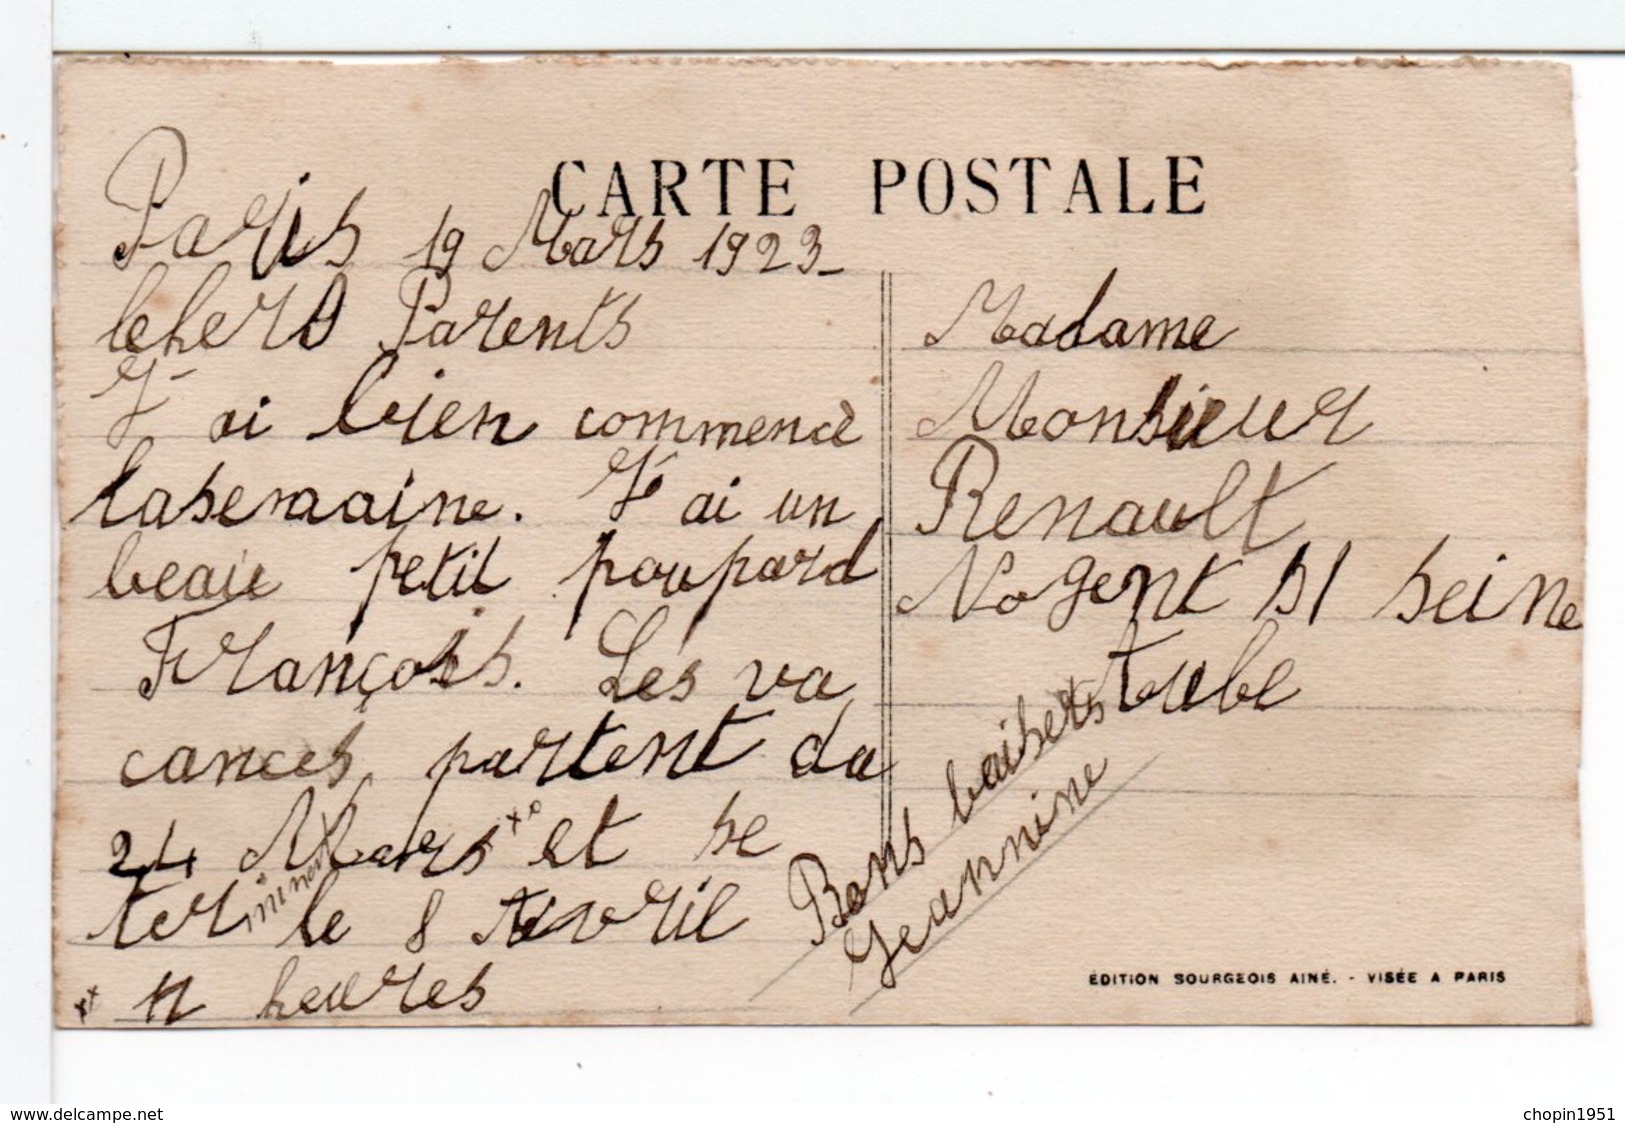 CARTE POSTALE
Paris 19 Mars 1923_
Chers Parents
J'ai bien commencé
la semaine. J'ai un
beau petit poupard
François. Les va
cances partent du
24 Mars xo et se
terminent le 8 Avril
xx 11 heures
Madame
Monsieur
Renault
Nogent s/ Seine
Aube
Bons baisers
Jeannine
EDITION SOURGEOIS AINÉ. - VISÉE A PARIS
www.delcampe.net
chopin1951